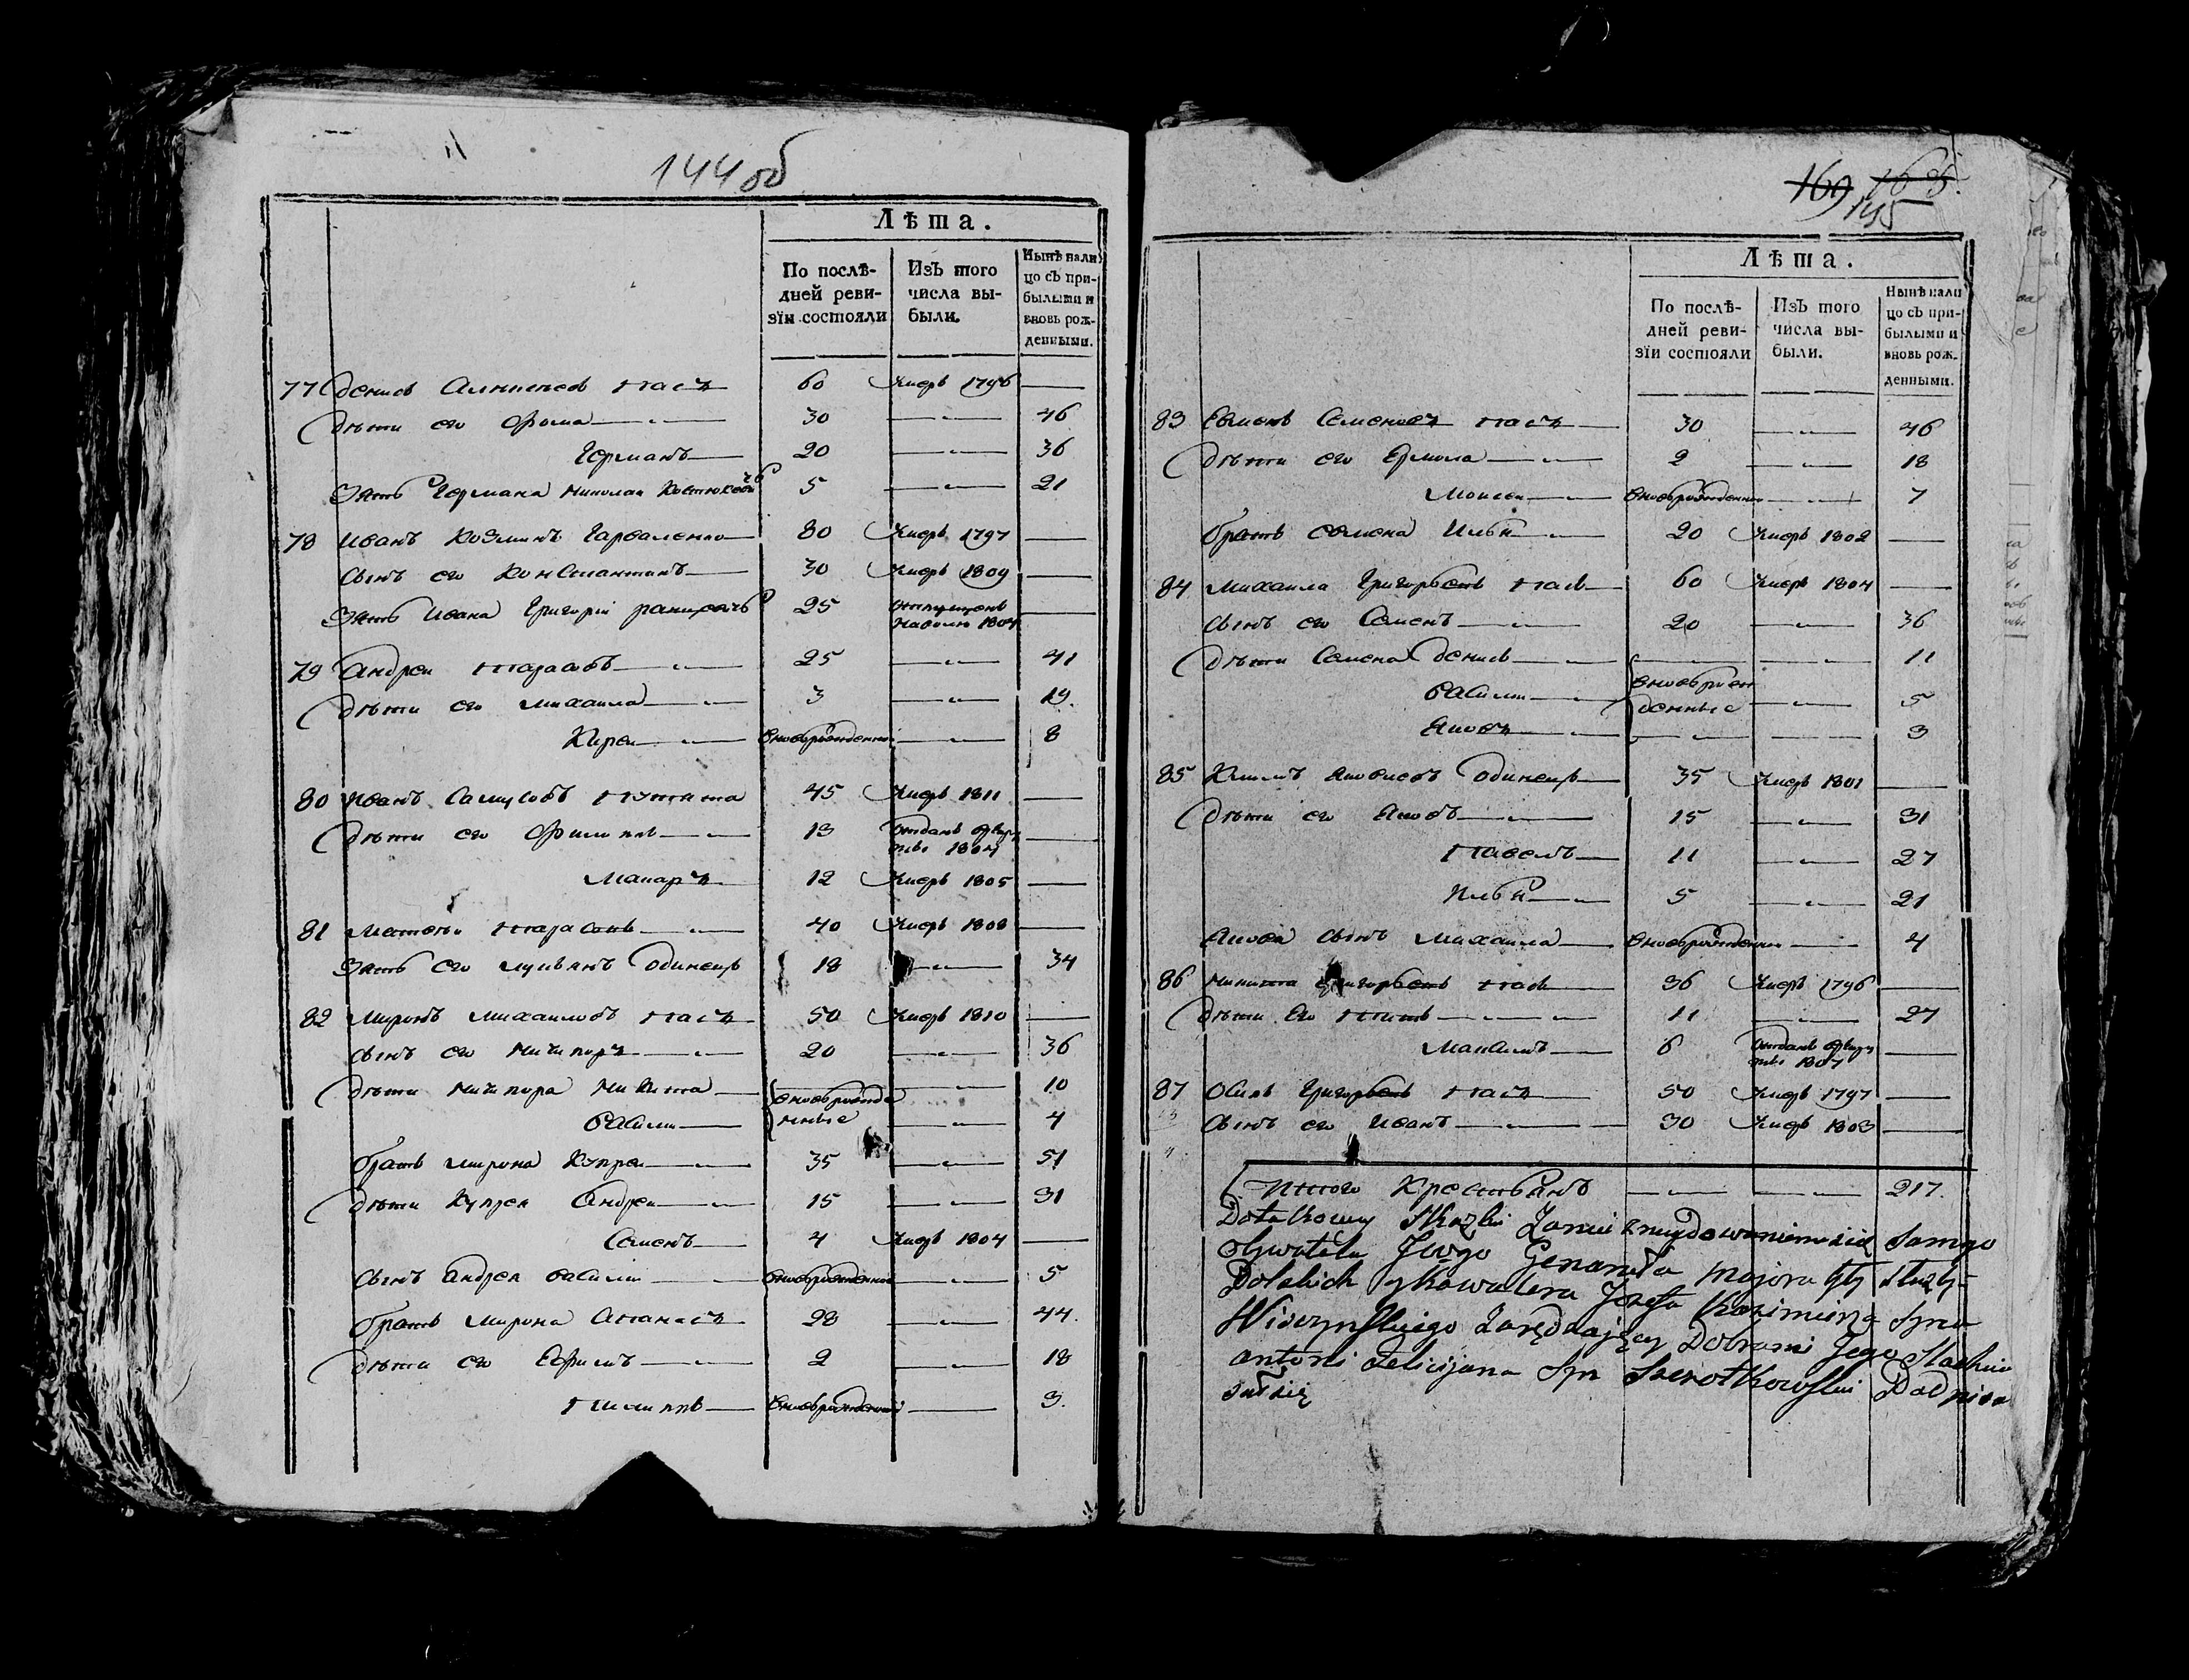 144 об
Лѣта.
По послѣдней ревизіи состояли
Изъ того числа выбыли.
Нынѣ налицо съ прибылыми и вновь рожденными.
77 Денисъ пасъ 60 Умеръ 1796 —
Дѣти его Фома 30 — 46
Германъ 20 — 36
Зять Германа Николай 5 — 21
78 Иванъ Козминъ 80 Умеръ 1797 —
Сынъ его Константинъ 30 Умеръ 1809 —
Зять Ивана Григорій 25 отпущенъ
наволю 1804 —
79 Андрей Тарасовъ 25 — 41
Дѣти его Михайла 3 — 19.
Кирей вновьрожденный — 8
80 Иванъ Самусовъ 45 Умеръ 1811 —
Дѣти его Филиппъ 13 отданъ врекру
ты 1804 —
Макаръ 12 Умеръ 1805 —
81 Матвѣй Тарасовъ 40 Умеръ 1808 —
Зять его Лукьянъ Одинецъ 18 — 34
82 Миронъ Михайловъ пасъ 50 Умеръ 1810 —
Сынъ его Ничипоръ 20 — 36
Дѣти Ничипора Никита вновьрожде — 10
Василій нные — 4
братъ Мирона Купрей 35 — 51
Дѣти Купрея Андрей 15 — 31
Семенъ 4 Умеръ 1804 —
Сынъ Андрея Василій вновьрожденный — 5
братъ Мирона Апанасъ 28 — 44.
Дѣти его Ефимъ 2 — 18
Пилиппъ вновьрожденный — 3.
169 168.
145
Лѣта.
По послѣдней ревизіи состояли
Изъ того числа выбыли.
Нынѣ налицо съ прибылыми и вновь рожденными.
83 Семеновъ пасъ 30 — 46
Дѣти его Ермола 2 — 18
Моисей вновьрожденный — 7
братъ Илья 20 Умеръ 1802 —
84 Михайла Григорьевъ пасъ 60 Умеръ 1804 —
Сынъ его Семенъ 20 — 36
Дѣти Семена Денисъ — — 11
Василій вновьрож
денные — 5
Яковъ — — 3
85 Климъ Одинецъ 35 Умеръ 1801 —
Дѣти его Яковъ 15 — 31
Павелъ 11 — 27
Илья 5 — 21
Якова сынъ Михайла вновьрожденный — 4
86 Никита Григорьевъ пасъ 36 Умеръ 1796 —
Дѣти Его 11 — 27
Максимъ 6 отданъ врекру
ты 1807 —
87 Осипъ Григорьевъ пасъ 50 Умеръ 1797 —
Сынъ его Иванъ 30 Умеръ 1803 —
Итого Крестьянъ — — 217.
Dotakowey Skazki Zanie znaydowaniem się Samego
Obywatela Jwgo Generała Majora
Polskich y Kawalera Józefa Kazimierza Syna
Zarządzający Dobrami Jego
Antoni Felicijana Syn Podpisa
łsię